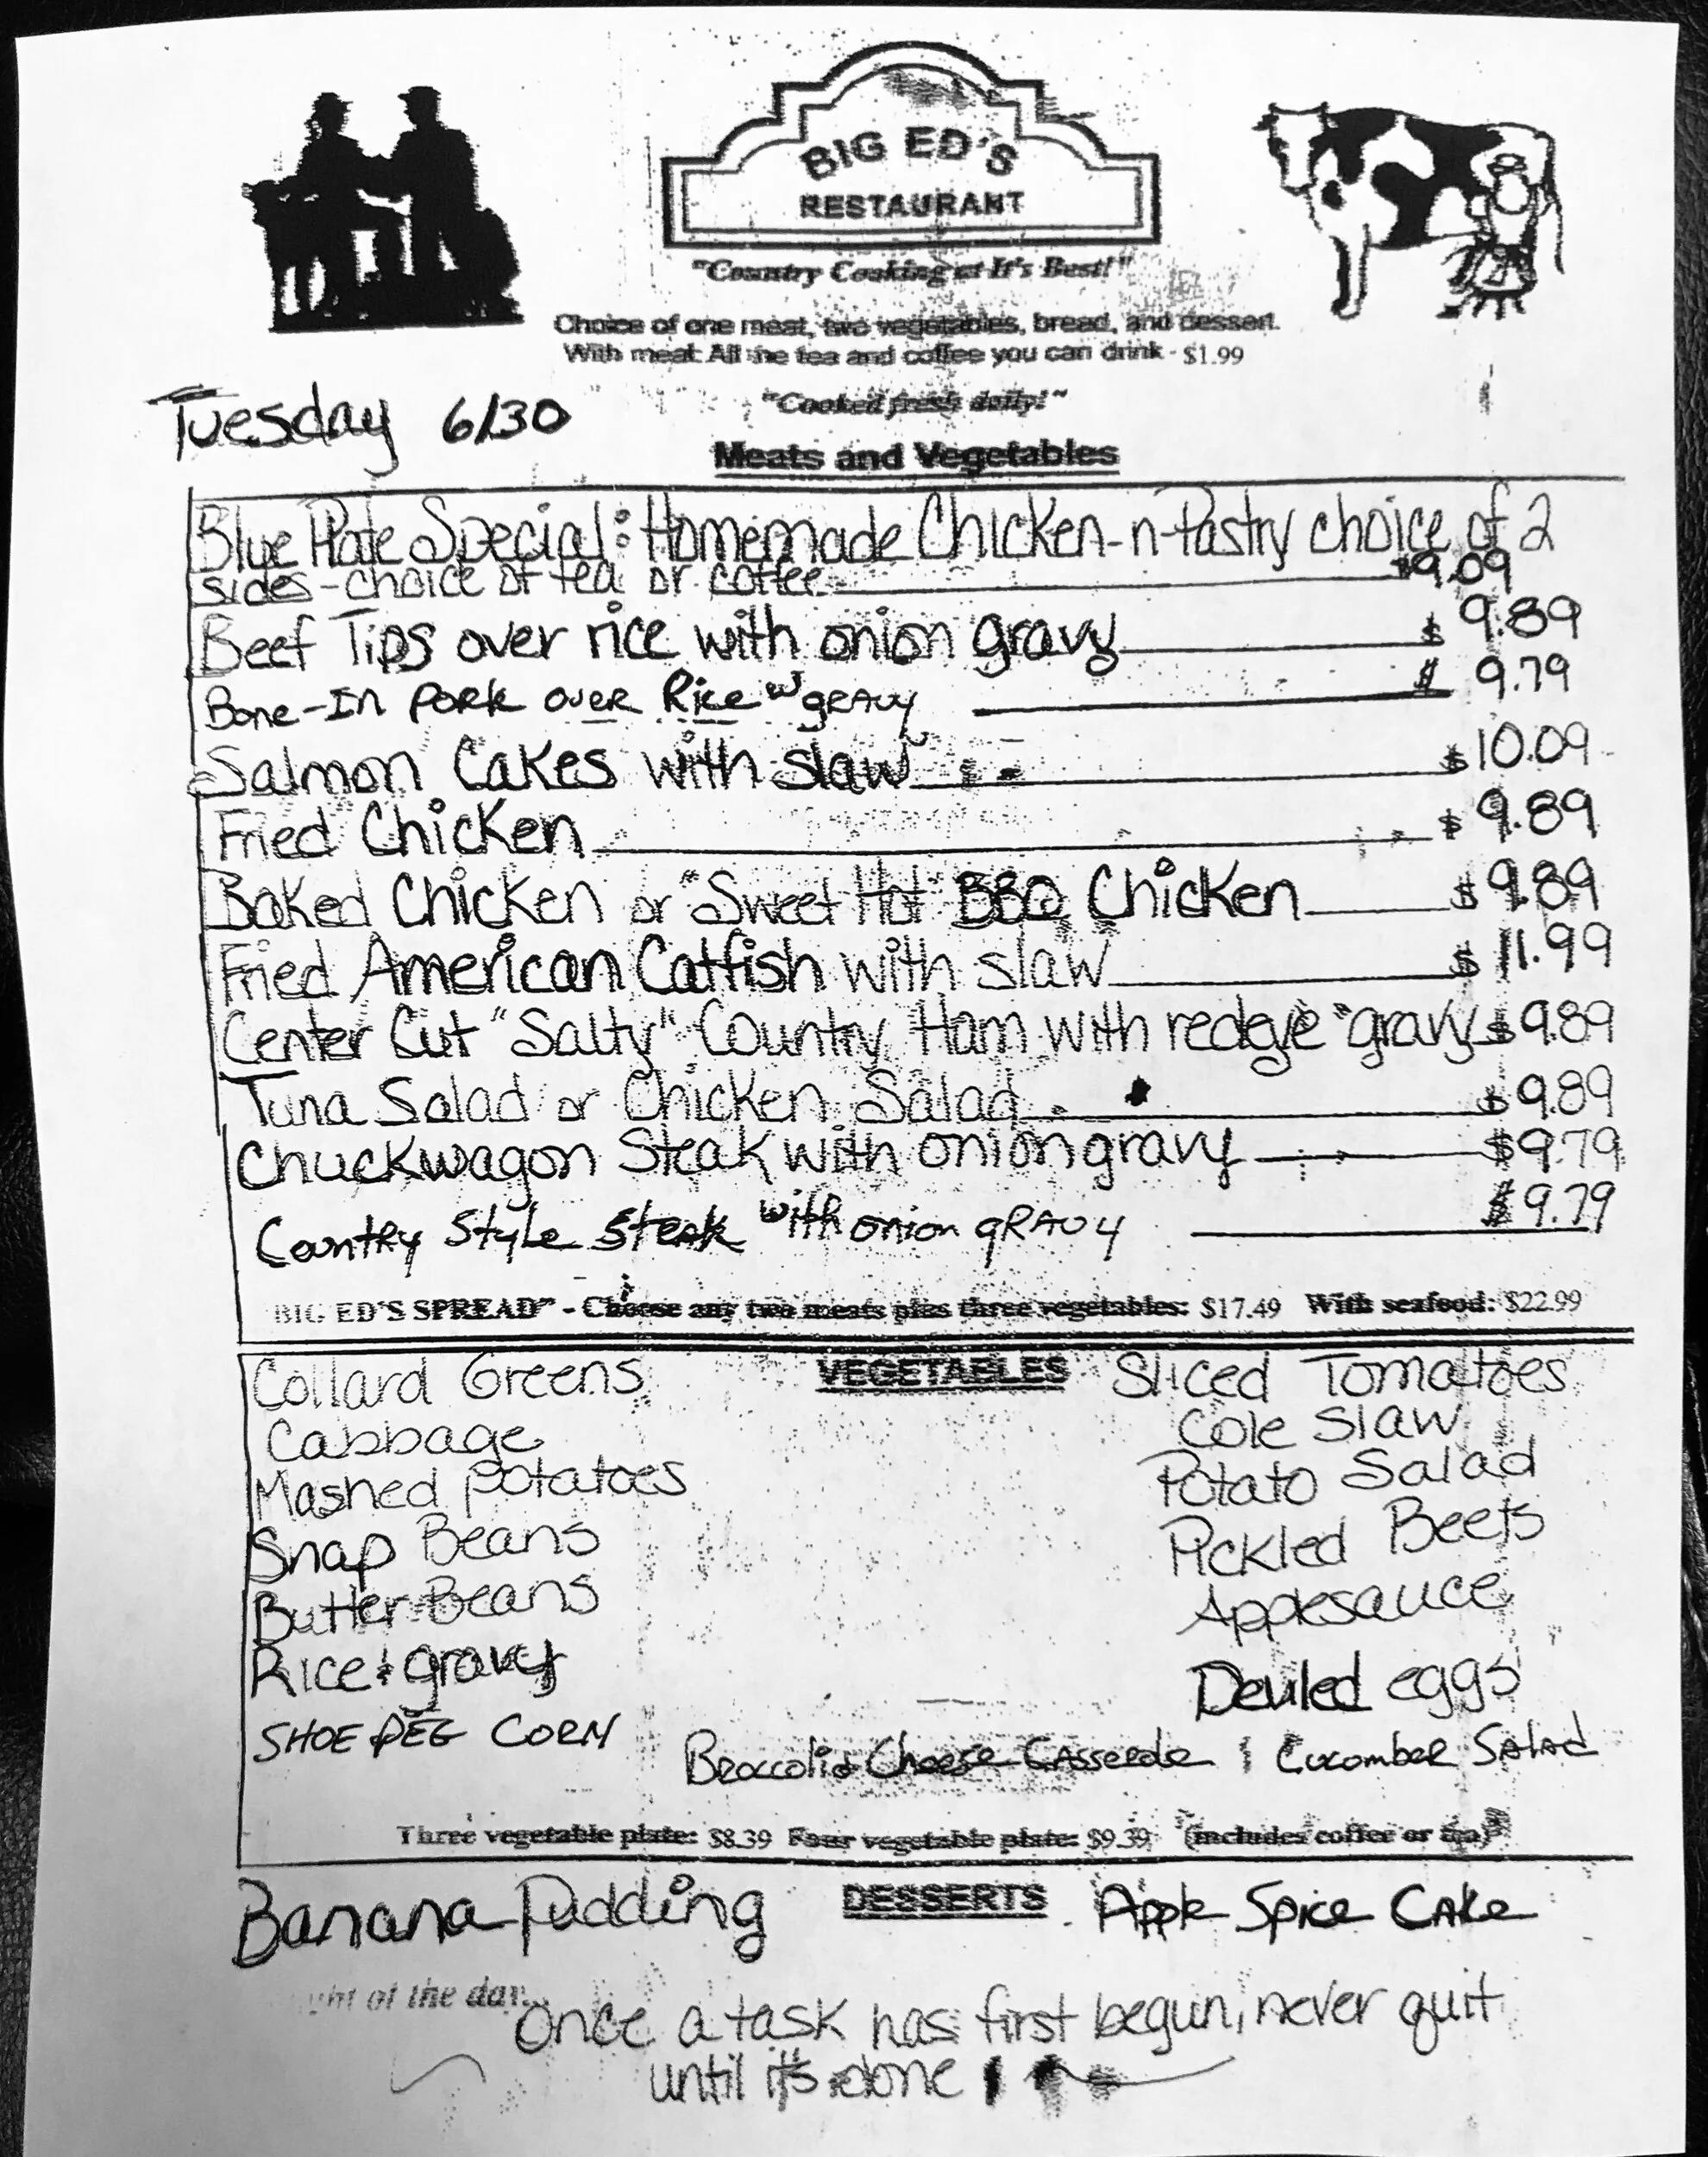 BIG ED'S
RESTAURANT
"Country Cooking at It's Best!"
Choice of one meat, two vegetables, bread, and dessert.
With meat: All the tea and coffee you can drink - $1.99
Tuesday 6/30
"Cooked fresh daily!"
Meats and Vegetables
Blue Plate Special: Homemade Chicken-n-Pastry choice of 2
sides - choice of tea or coffee $9.09
Beef Tips over rice with onion gravy $ 9.89
Bone-In Pork over Rice w/ gravy $ 9.79
Salmon Cakes with slaw $10.09
Fried Chicken $ 9.89
Baked Chicken or "Sweet Hot" BBQ Chicken $ 9.89
Fried American Catfish with slaw $ 11.99
Center Cut "Salty" Country Ham with redeye "gravy $ 9.89
Tuna Salad or Chicken Salad $ 9.89
Chuckwagon Steak with onion gravy $9.79
Country Style Steak with onion gravy $9.79
BIG ED'S SPREAD" - Choose any two meats plus three vegetables: $17.49 With seafood: $22.99
VEGETABLES
Collard Greens
Cabbage
Mashed potatoes
Snap Beans
Butter Beans
Rice & gravy
SHOE PEG CORN
Sliced Tomatoes
Cole Slaw
Potato Salad
Pickled Beets
Applesauce
Deviled eggs
Broccoli & Cheese Casserole & Cucomber Salad
Three vegetable plate: $8.39 Four vegetable plate: $9.39 (includes coffee or tea)
DESSERTS
Banana Pudding
Apple Spice Cake
of the day...
Once a task has first begun, never quit
until it's done